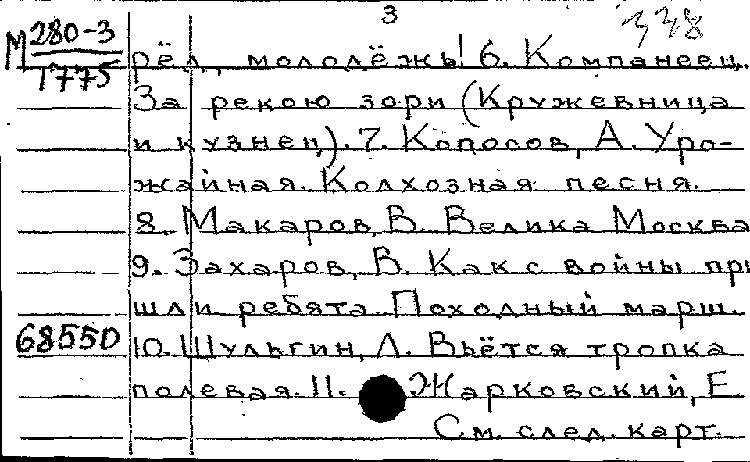 3
338
М 280-3
1775
рёл, молодёжь! 6. Компанеец.
За рекою зори (Кружевница
и кузнец). 7. Копосов, А. Уро-
жайная. Колхозная песня.
8. Макаров, В. Велика Москва
9. Захаров, В. Как с войны при
шли ребята. Походный марш.
68550
10. Шульгин, Л. Вьётся тропка
полевая. 11. Жарковский, Е
См. след. карт.